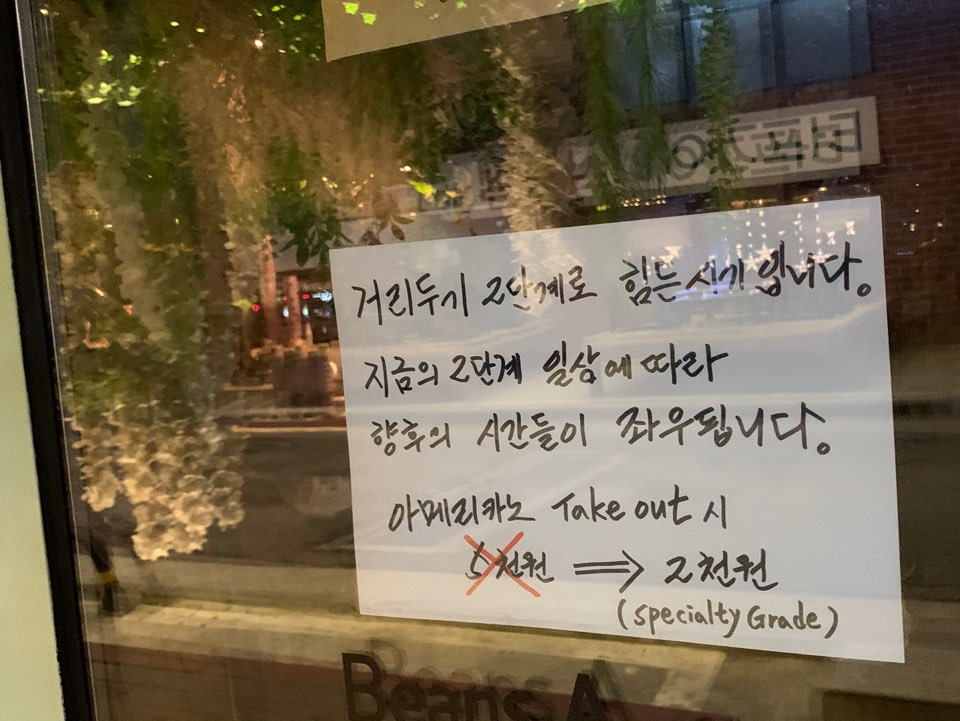 거리두기 2단계로 힘든시기 입니다.
지금의 2단계 일상에 따라
향후의 시간들이 좌우됩니다.
아메리카노 Take out 시
5천원 ⇒ 2천원
(Specialty Grade)
Beans A